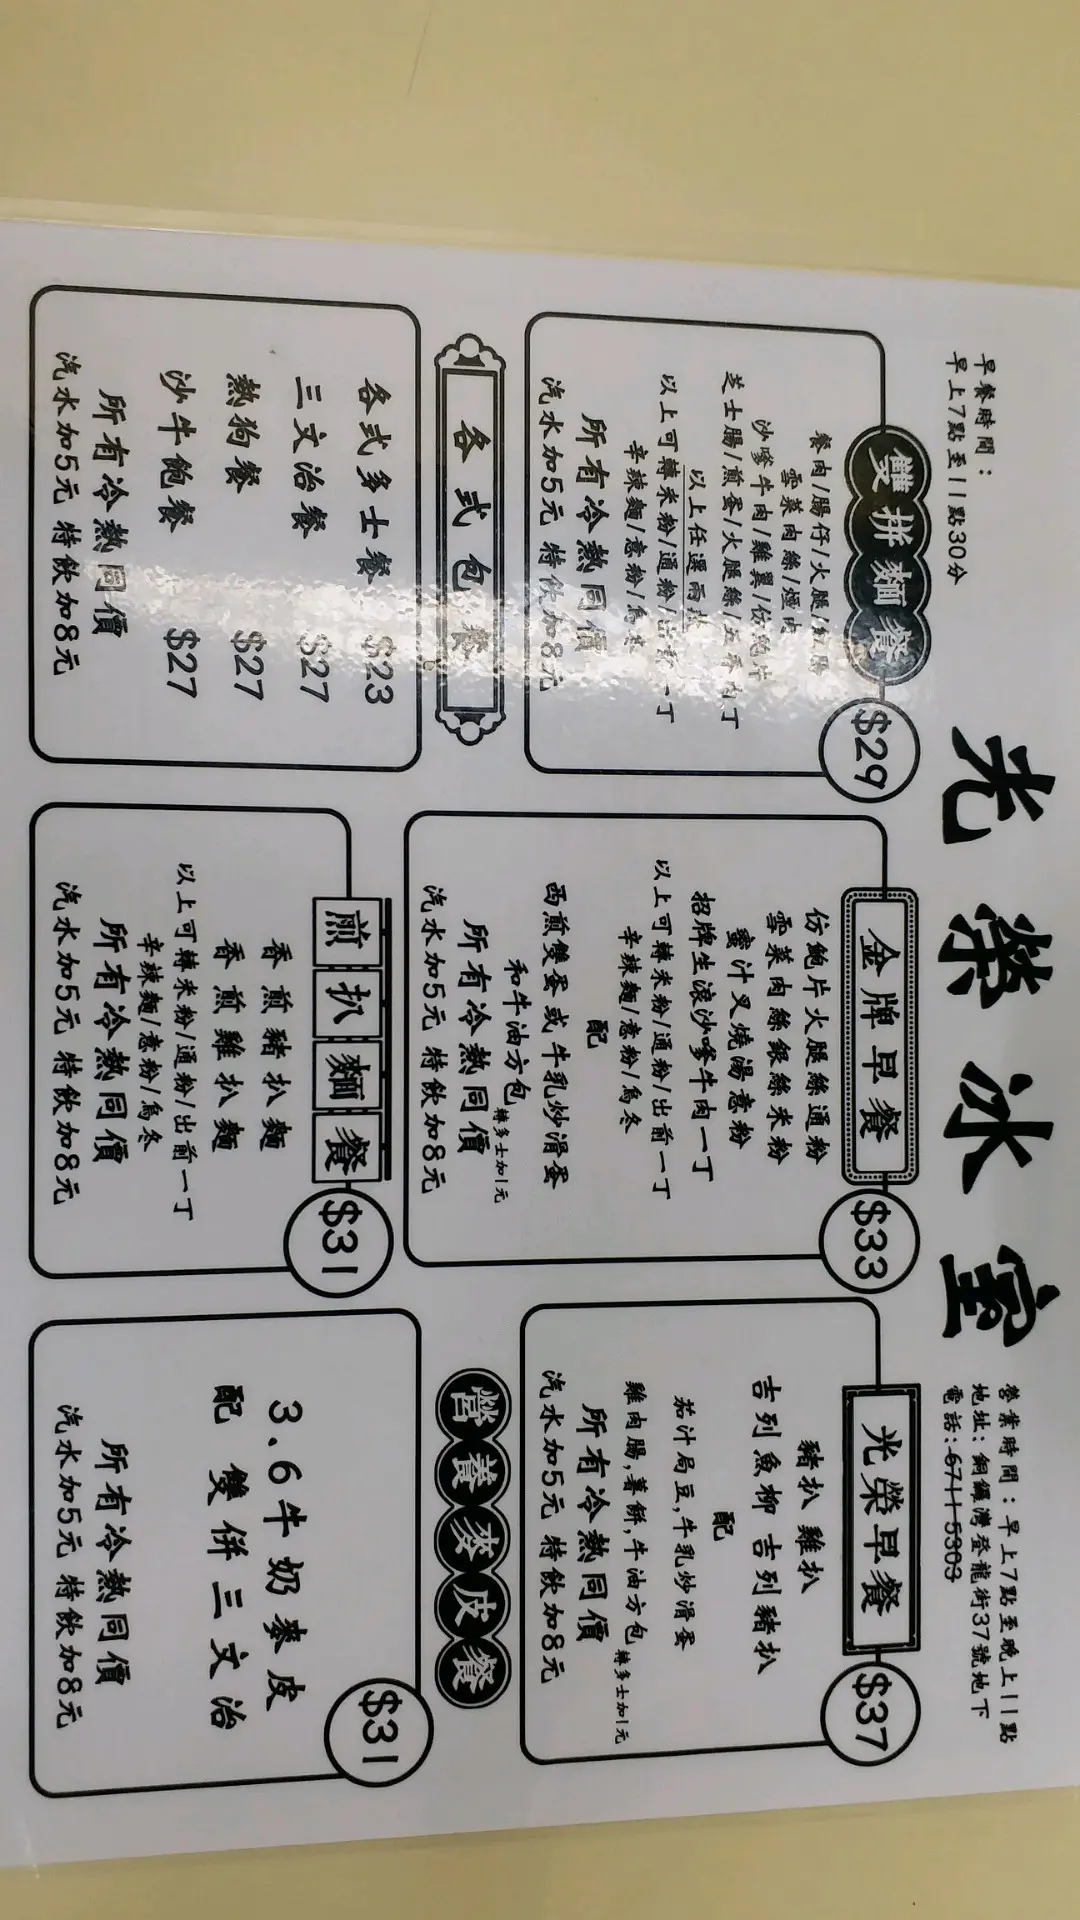 早餐時間：
早上7點至11點30分
光榮冰室
營業時間：早上7點至晚上11點
地址：銅鑼灣登龍街37號地下
電話：6711 5303
雙拼麵餐 $29
餐肉/腸仔/火腿/紅腸
雪菜肉絲/煙肉
沙嗲牛肉/雞翼/仿鮑片
芝士腸/煎蛋/火腿絲/五香肉丁
以上任選兩款
以上可轉米粉/通粉/出前一丁
辛辣麵/意粉/烏冬
所有冷熱同價
汽水加5元 特飲加8元
金牌早餐 $33
仿鮑片火腿絲通粉
雪菜肉絲銀絲米粉
蜜汁叉燒湯意粉
招牌生滾沙嗲牛肉一丁
以上可轉米粉/通粉/出前一丁
辛辣麵/意粉/烏冬
配
西煎雙蛋或牛乳炒滑蛋
和牛油方包 轉多士加1元
所有冷熱同價
汽水加5元 特飲加8元
光榮早餐 $37
豬扒 雞扒
吉列魚柳 吉列豬扒
配
茄汁局豆,牛乳炒滑蛋
雞肉腸,薯餅,牛油方包 轉多士加1元
所有冷熱同價
汽水加5元 特飲加8元
各式包餐
各式多士餐 $23
三文治餐 $27
熱狗餐 $27
沙牛飽餐 $27
所有冷熱同價
汽水加5元 特飲加8元
煎扒麵餐 $31
香煎豬扒麵
香煎雞扒麵
以上可轉米粉/通粉/出前一丁
辛辣麵/意粉/烏冬
所有冷熱同價
汽水加5元 特飲加8元
營養麥皮餐 $31
3.6牛奶麥皮
配 雙併三文治
所有冷熱同價
汽水加5元 特飲加8元